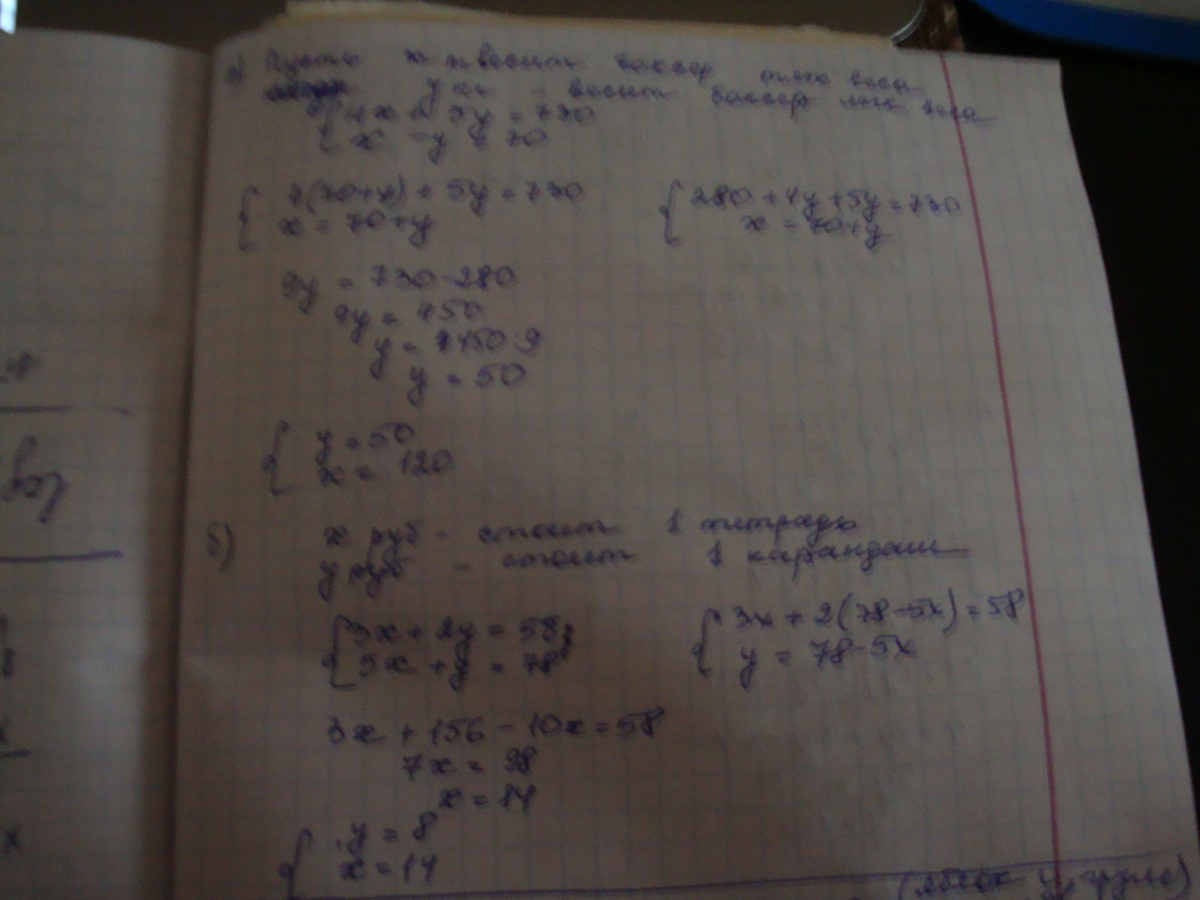 а) Пусть x кг весит боксер тяж веса
y кг - весит боксер легк веса
{ 4x + 5y = 730
x - y = 70
{ 4(70+y) + 5y = 730 { 280 + 4y + 5y = 730
x = 70+y x = 70+y
9y = 730-280
9y = 450
y = 450:9
y = 50
{ y = 50
x = 120
б) x руб - стоит 1 тетрадь
y руб - стоит 1 карандаш
{ 3x + 2y = 58; { 3x + 2(78-5x) = 58
5x + y = 78 y = 78-5x
3x + 156 - 10x = 58
7x = 98
x = 14
{ y = 8
x = 14